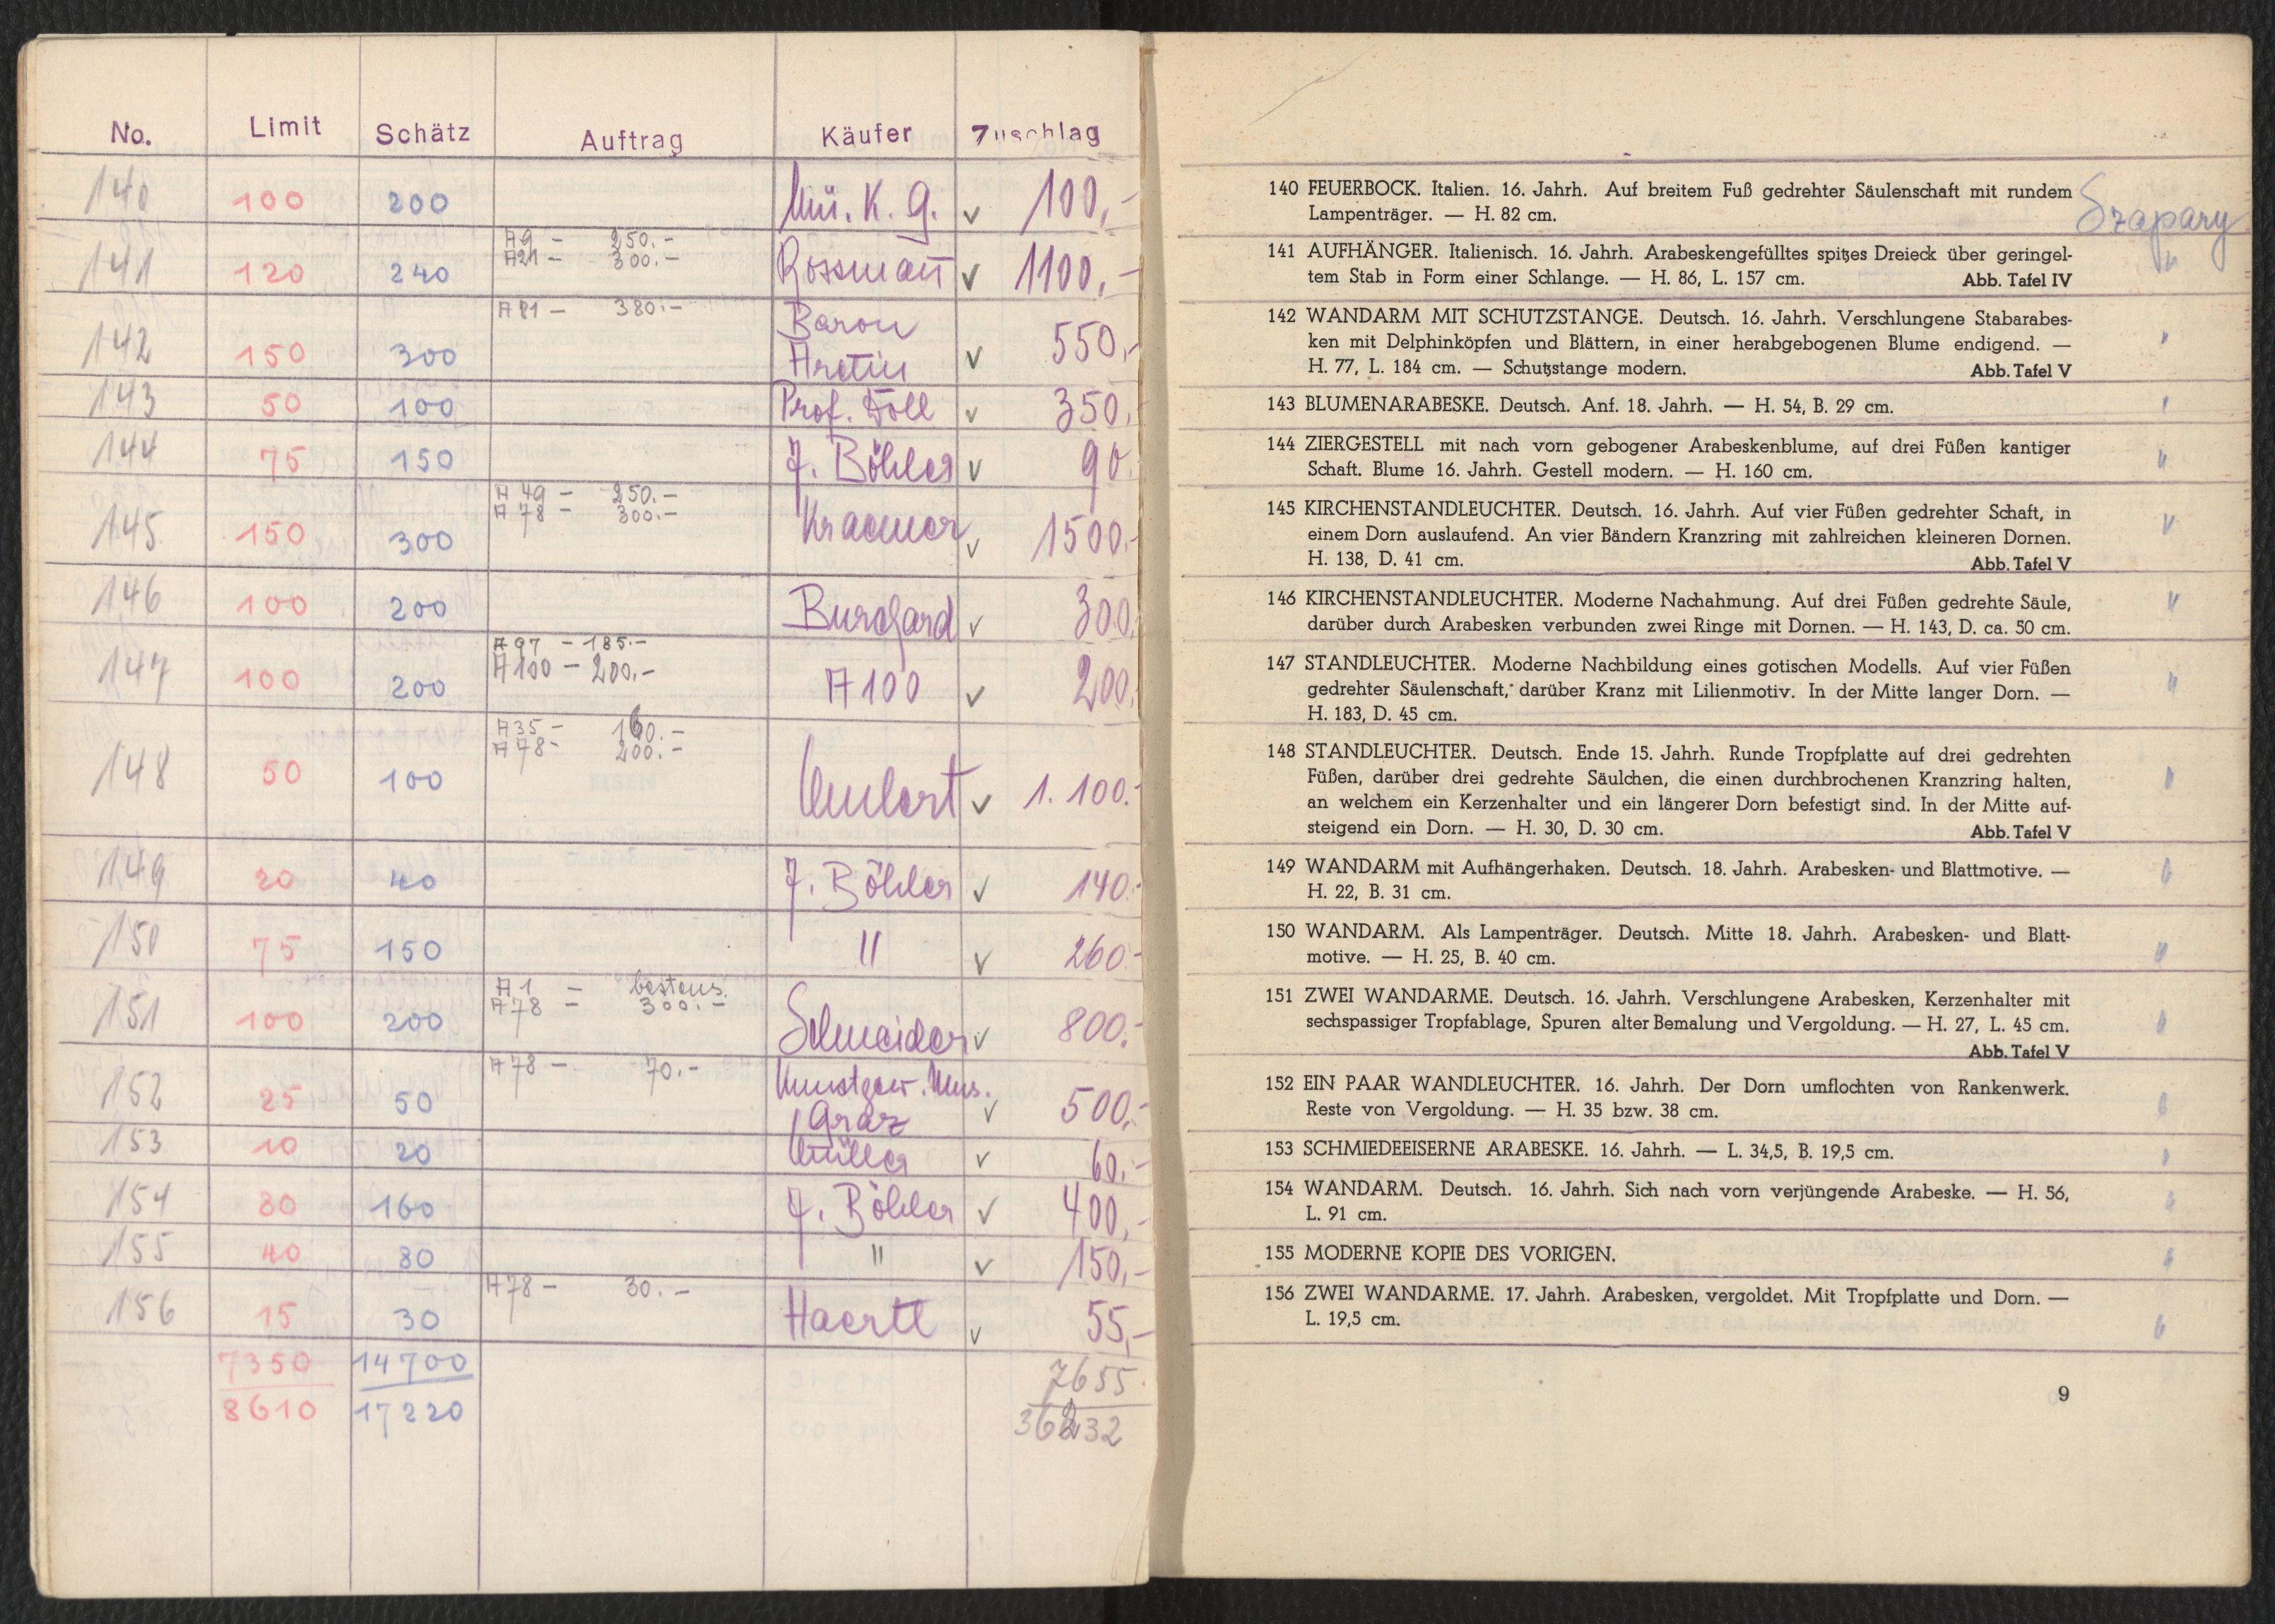 No. Limit Schätz Auftrag Käufer Zuschlag
140 100 200 Mü. K. G. v 100,-
A9 - 250.-
A21 - 300.-
141 120 240 Rossmann v 1100,-
A81 - 380.-
142 150 300 Baron Aretin v 550,-
143 50 100 Prof. Döll v 350,
144 75 150 J. Böhler v 90.
A 49 - 250.-
A 78 - 300.-
145 150 300 Kraemer v 1500.-
146 100 200 Burchard v 300,
A97 - 185.-
A100 - 200.-
147 100 200 A100 v 200,
A35 - 160.-
A78 - 200.-
148 50 100 v 1.100.-
149 20 40 J. Böhler v 140.-
150 75 150 " v 260.-
A1 - bestens.
A78 - 300.-
151 100 200 Schneider v 800.-
A78 - 70.-
152 25 50 Kunstgew. Mus. Graz v 500,-
153 10 20 Müller v 60,-
154 80 160 J. Böhler v 400,-
155 40 80 " v 150,-
A78 - 30.-
156 15 30 Haertl v 55,-
7350 14700 7655.
8610 17220 36232
140 FEUERBOCK. Italien. 16. Jahrh. Auf breitem Fuß gedrehter Säulenschaft mit rundem
Lampenträger. — H. 82 cm.
Szapary
141 AUFHÄNGER. Italienisch. 16. Jahrh. Arabeskengefülltes spitzes Dreieck über geringel-
tem Stab in Form einer Schlange. — H. 86, L. 157 cm. Abb. Tafel IV
"
142 WANDARM MIT SCHUTZSTANGE. Deutsch. 16. Jahrh. Verschlungene Stabarabes-
ken mit Delphinköpfen und Blättern, in einer herabgebogenen Blume endigend. —
H. 77, L. 184 cm. — Schutzstange modern. Abb. Tafel V
"
143 BLUMENARABESKE. Deutsch. Anf. 18. Jahrh. — H. 54, B. 29 cm.
"
144 ZIERGESTELL mit nach vorn gebogener Arabeskenblume, auf drei Füßen kantiger
Schaft. Blume 16. Jahrh. Gestell modern. — H. 160 cm.
"
145 KIRCHENSTANDLEUCHTER. Deutsch. 16. Jahrh. Auf vier Füßen gedrehter Schaft, in
einem Dorn auslaufend. An vier Bändern Kranzring mit zahlreichen kleineren Dornen.
H. 138, D. 41 cm. Abb. Tafel V
"
146 KIRCHENSTANDLEUCHTER. Moderne Nachahmung. Auf drei Füßen gedrehte Säule,
darüber durch Arabesken verbunden zwei Ringe mit Dornen. — H. 143, D. ca. 50 cm.
"
147 STANDLEUCHTER. Moderne Nachbildung eines gotischen Modells. Auf vier Füßen
gedrehter Säulenschaft, darüber Kranz mit Lilienmotiv. In der Mitte langer Dorn. —
H. 183, D. 45 cm.
"
148 STANDLEUCHTER. Deutsch. Ende 15. Jahrh. Runde Tropfplatte auf drei gedrehten
Füßen, darüber drei gedrehte Säulchen, die einen durchbrochenen Kranzring halten,
an welchem ein Kerzenhalter und ein längerer Dorn befestigt sind. In der Mitte auf-
steigend ein Dorn. — H. 30, D. 30 cm. Abb. Tafel V
"
149 WANDARM mit Aufhängerhaken. Deutsch. 18. Jahrh. Arabesken- und Blattmotive. —
H. 22, B. 31 cm.
"
150 WANDARM. Als Lampenträger. Deutsch. Mitte 18. Jahrh. Arabesken- und Blatt-
motive. — H. 25, B. 40 cm.
"
151 ZWEI WANDARME. Deutsch. 16. Jahrh. Verschlungene Arabesken, Kerzenhalter mit
sechspassiger Tropfablage, Spuren alter Bemalung und Vergoldung. — H. 27, L. 45 cm.
Abb. Tafel V
"
152 EIN PAAR WANDLEUCHTER. 16. Jahrh. Der Dorn umflochten von Rankenwerk.
Reste von Vergoldung. — H. 35 bzw. 38 cm.
"
153 SCHMIEDEEISERNE ARABESKE. 16. Jahrh. — L. 34,5, B. 19,5 cm.
"
154 WANDARM. Deutsch. 16. Jahrh. Sich nach vorn verjüngende Arabeske. — H. 56,
L. 91 cm.
"
155 MODERNE KOPIE DES VORIGEN.
"
156 ZWEI WANDARME. 17. Jahrh. Arabesken, vergoldet. Mit Tropfplatte und Dorn. —
L. 19,5 cm.
"
9